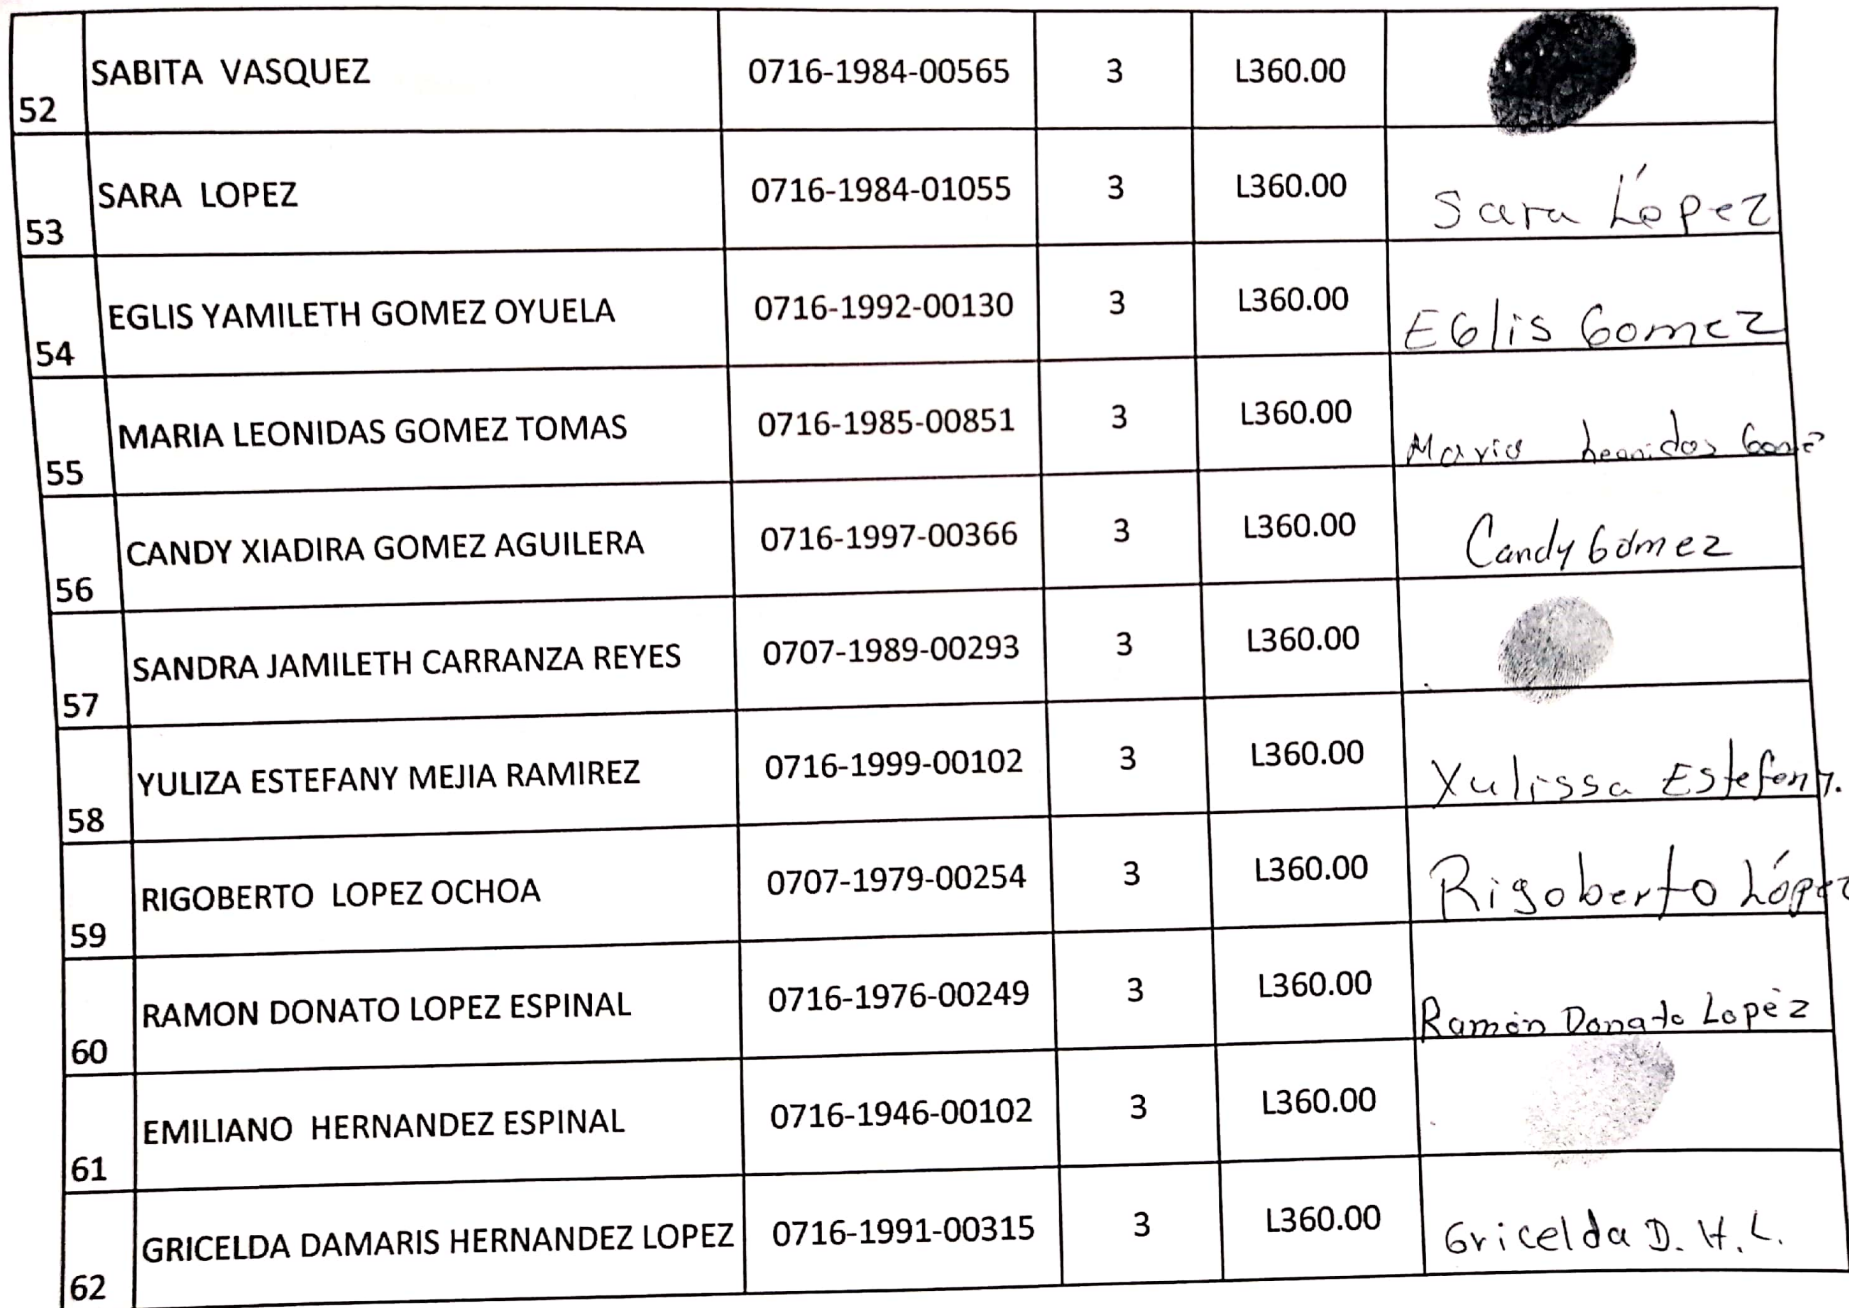 52 SABITA VASQUEZ 0716-1984-00565 3 L360.00
53 SARA LOPEZ 0716-1984-01055 3 L360.00 Sara López
54 EGLIS YAMILETH GOMEZ OYUELA 0716-1992-00130 3 L360.00 EGlis Gomez
55 MARIA LEONIDAS GOMEZ TOMAS 0716-1985-00851 3 L360.00 Maria Leonidas
56 CANDY XIADIRA GOMEZ AGUILERA 0716-1997-00366 3 L360.00 Candy Gómez
57 SANDRA JAMILETH CARRANZA REYES 0707-1989-00293 3 L360.00
58 YULIZA ESTEFANY MEJIA RAMIREZ 0716-1999-00102 3 L360.00 Yulissa Estefeny.
59 RIGOBERTO LOPEZ OCHOA 0707-1979-00254 3 L360.00 Rigoberto López
60 RAMON DONATO LOPEZ ESPINAL 0716-1976-00249 3 L360.00 Ramón Donato Lopéz
61 EMILIANO HERNANDEZ ESPINAL 0716-1946-00102 3 L360.00
62 GRICELDA DAMARIS HERNANDEZ LOPEZ 0716-1991-00315 3 L360.00 Gricelda D. H. L.